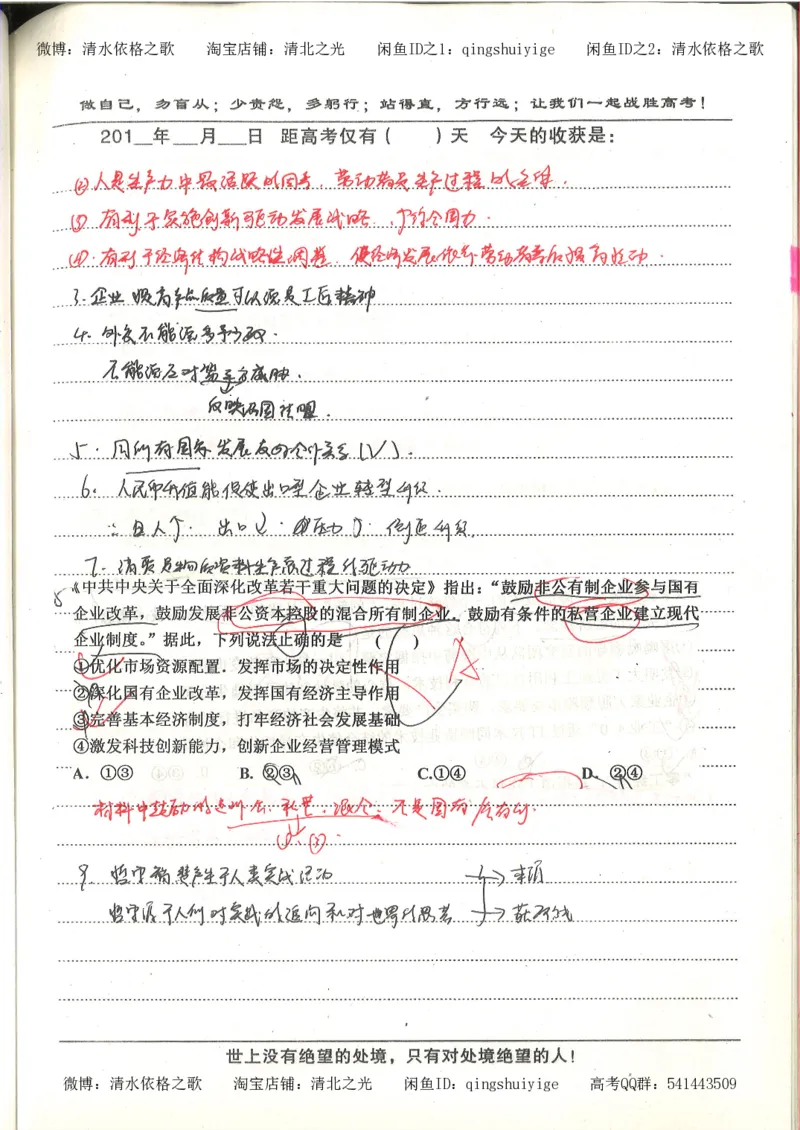 微博：清水依格之歌 淘宝店铺：清北之光 闲鱼ID之1：qingshuiyige 闲鱼ID之2：清水依格之歌
做自己，勿盲从；少责怨，多躬行；站得直，方行远；让我们一起战胜高考！
201__年___月___日 距高考仅有（ ）天 今天的收获是：
②人是生产力中最活跃的因素，劳动者是生产过程的主体．
③有利于实施创新驱动发展战略，
④．有利于经济结构战略性调整，使经济发展依靠劳动者素质提高拉动．
3．企业 提高产品质量可以源是工匠精神
4．外交不能活
不能
反映 结盟．
5．同所有国家发展友好合作关系（√）．
6．人民币升值能促使出口型企业转型升级．
∵ 出口↓．压力↑．倒逼升级．
7．消费
8
《中共中央关于全面深化改革若干重大问题的决定》指出：“鼓励非公有制企业参与国有
企业改革，鼓励发展非公资本控股的混合所有制企业．鼓励有条件的私营企业建立现代
企业制度。”据此，下列说法正确的是 （ ）
①优化市场资源配置．发挥市场的决定性作用
②深化国有企业改革，发挥国有经济主导作用
③完善基本经济制度，打牢经济社会发展基础
④激发科技创新能力，创新企业经营管理模式
A．①③ B．②③ C.①④ D．②④
材料中鼓励的是非公、私营、混合，不是国有
②．
9．哲学智慧产生于人类实践活动 → 本质
哲学源于人们对实践的追问和对世界的思考 →
世上没有绝望的处境，只有对处境绝望的人！
微博：清水依格之歌 淘宝店铺：清北之光 闲鱼ID：qingshuiyige 高考QQ群：541443509